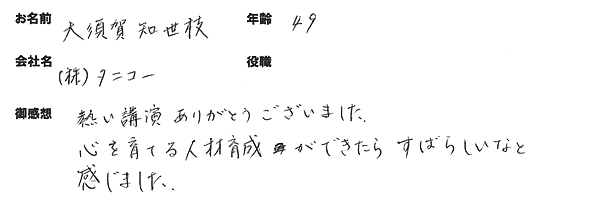 お名前 大須賀 知世枝 年齢 49
会社名 (株)タニコー 役職
御感想 熱い講演ありがとうございました。
心を育てる人材育成ができたらすばらしいなと
感じました。